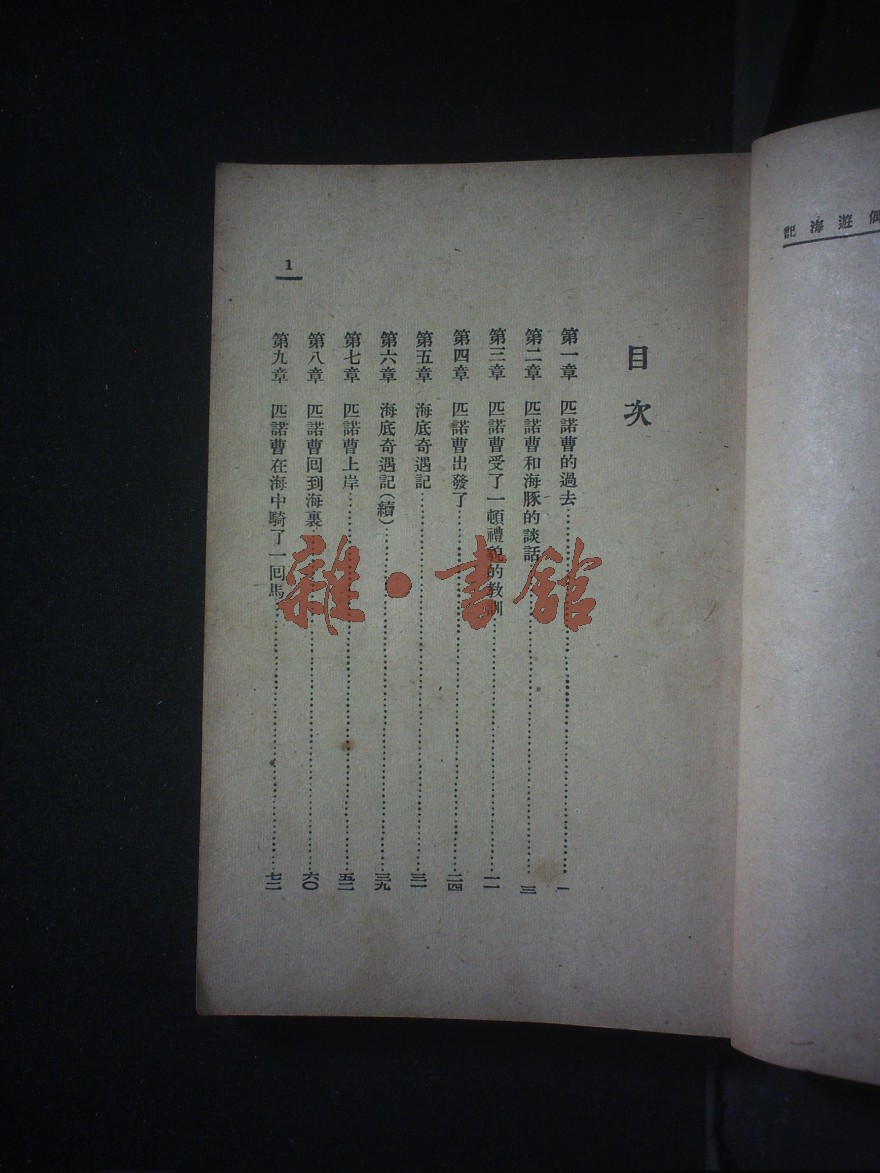 偶遊海記
目次
第一章 匹諾曹的過去……一
第二章 匹諾曹和海豚的談話……三
第三章 匹諾曹受了一頓禮貌的教訓……一一
第四章 匹諾曹出發了……二四
第五章 海底奇遇記……三一
第六章 海底奇遇記(續)……三九
第七章 匹諾曹上岸……五二
第八章 匹諾曹回到海裏……六〇
第九章 匹諾曹在海中騎了一回馬……七二
1
雜·書館